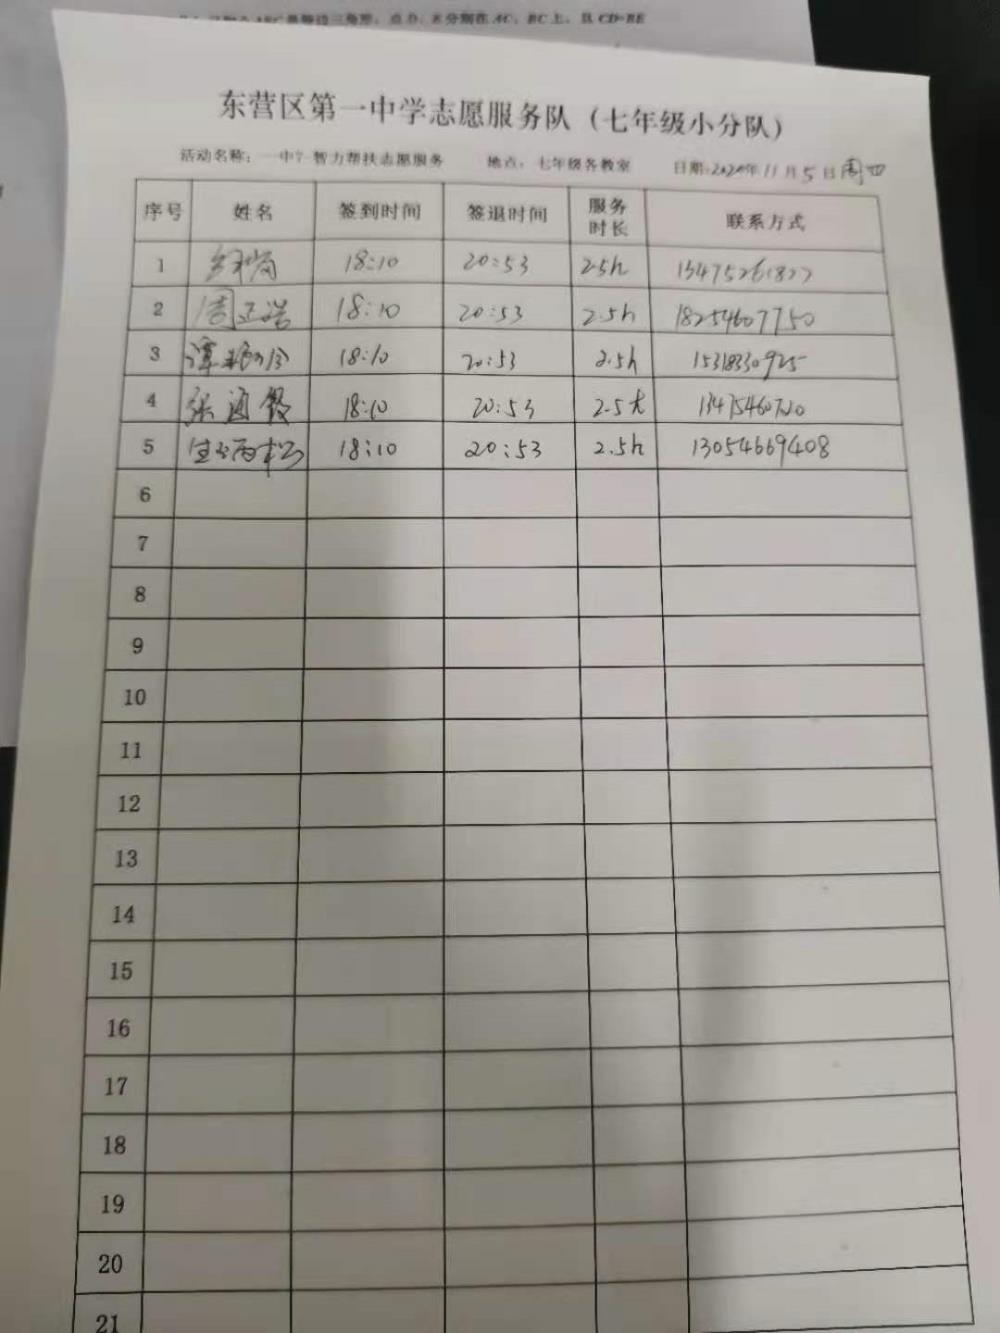 △ABC是等边三角形，点D、E分别在AC、BC上，且CD=BE
东营区第一中学志愿服务队（七年级小分队）
活动名称：一中 智力帮扶志愿服务 地点：七年级各教室 日期:2020年11月5日周四
序号 姓名 签到时间 签退时间 服务时长 联系方式
1 18:10 20:53 2.5h
2 周正浩 18:10 20:53 2.5h 18254607750
3 谭 18:10 20:53 2.5h 15318330925
4 张 18:10 20:53 2.5h 13475460720
5 18:10 20:53 2.5h 13054669408
6
7
8
9
10
11
12
13
14
15
16
17
18
19
20
21